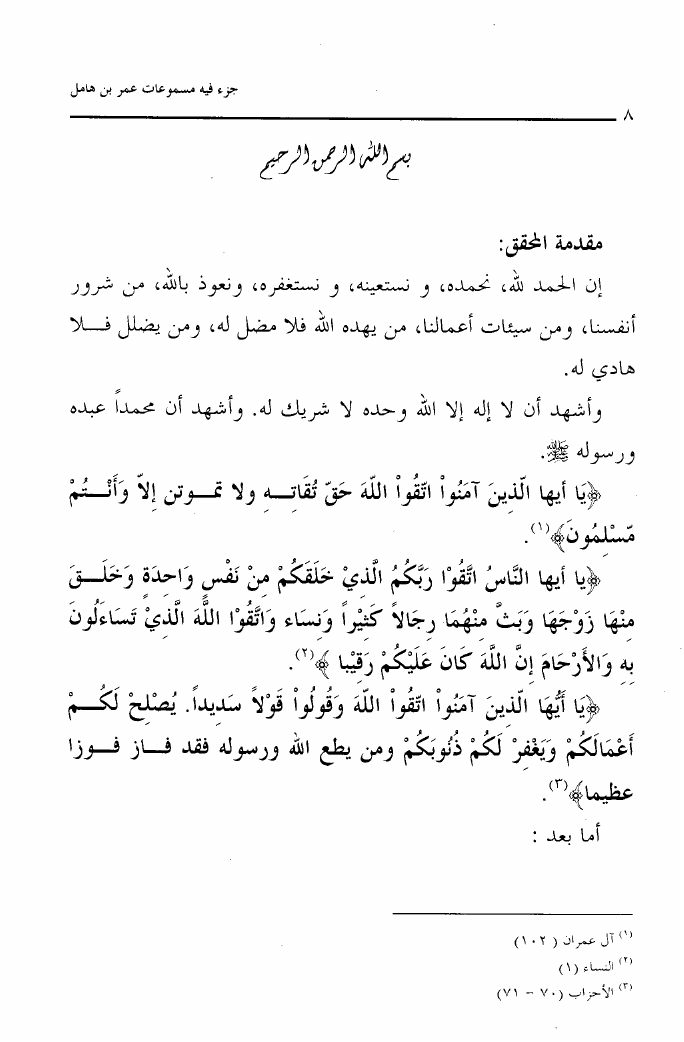 جزء فيه مسموعات عمر بن هامل
٨
بسم الله الرحمن الرحيم
مقدمة المحقق:
إن الحمد لله، نحمده، و نستعينه، و نستغفره، ونعوذ بالله، من شرور
أنفسنا، ومن سيئات أعمالنا، من يهده الله فلا مضل له، ومن يضلل فـــلا
هادي له.
وأشهد أن لا إله إلا الله وحده لا شريك له. وأشهد أن محمداً عبده
ورسوله ﷺ.
﴿يَا أيها الّذينَ آمَنُواْ اتّقُواْ اللّهَ حَقّ تُقَاتِـــهِ ولا تمـــوتن إلاّ وَأَنْـــتُمْ
مّسْلِمُونَ﴾(١).
﴿يا أيها النَّاسُ اتَّقُوْا رَبَّكُمُ الَّذِيْ خَلَقَكُمْ مِنْ نَفْسٍ وَاحِدَةٍ وَخَلَـــقَ
مِنْهَا زَوْجَهَا وَبَثَّ مِنْهُمَا رِجَالاً كَثِيْراً وَنِسَاء وَاتَّقُوْا اللَّهَ الَّذِيْ تَسَاءَلُونَ
بِهِ وَالأَرْحَامَ إِنَّ اللَّهَ كَانَ عَلَيْكُمْ رَقِيْبا ﴾(٢).
﴿يَا أَيُّهَا الّذِينَ آمَنُواْ اتّقُواْ اللّهَ وَقُولُواْ قَوْلاً سَدِيداً. يُصْلِحْ لَكُـــمْ
أَعْمَالَكُمْ وَيَغْفِرْ لَكُمْ ذُنُوبَكُمْ ومن يطع الله ورسوله فقد فـــاز فـــوزا
عظيما﴾(٣).
أما بعد :
(١) آل عمران ( ١٠٢)
(٢) النساء (١)
(٣) الأحزاب (٧٠ – ٧١)